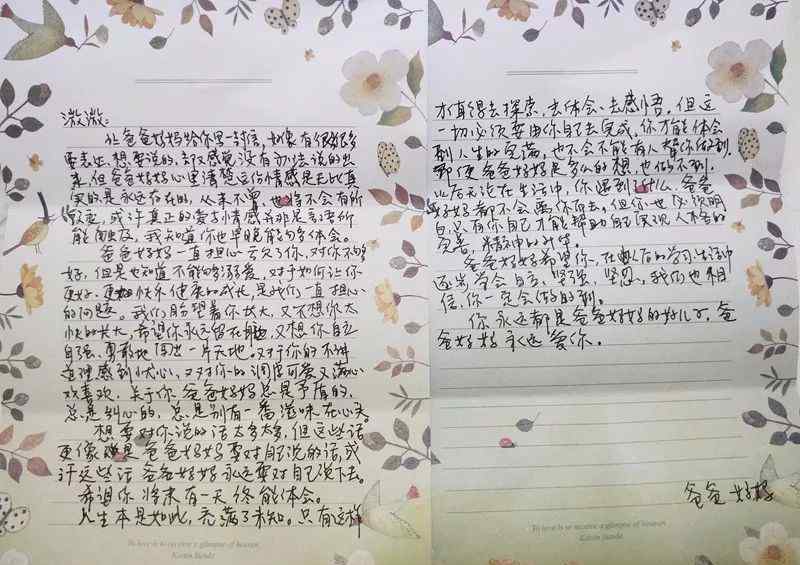 溦溦:
让爸爸妈妈给你写一封信,好像有很多很多
要表达、想要说的,却又感觉没有办法说的出
来,但爸爸妈妈心里清楚这份情感是无比真
实的是永远存在的,从来不曾,也将不会有所
改变,或许真正的爱与情感并非是言语所
能触及,我知道你也早晚能够多体会。
爸爸妈妈一直担心亏欠了你,对你不够
好,但是也知道不能够溺爱,对于如何让你
更好、更加快乐健康的成长,是我们一直担心
的问题。我们盼望着你长大,又不想你太
快的长大,希望你永远留在身边,又想你自己
自强、勇敢地闯出一片天地。又对于你的不讲
道理感到忧心,又对你的调皮可爱又满心
欢喜欢,关于你,爸爸妈妈总是矛盾的,
总是别心的,总是别有一番滋味在心头。
想要对你说的话太多太多,但这些话
更像是爸爸妈妈要对自己说的话,或
许这些话爸爸妈妈永远要对自己说下去。
希望你将来有一天终能体会。
人生本是如此,充满了未知。只有这样
To love is to receive a glimpse of heaven
Karen Sunde
才值得去探索、去体会、去感悟。但这
一切必须要由你自己去完成,你才能体会
到人生的完满,也不会不能有人替你做到,
即便爸爸妈妈是多么的想,也做不到。
以后无论在生活中,你遇到了什么,爸爸
妈妈都不会离你而去,但你也必须明
白,只有你自己才能帮助自己实现人格的
完善,精神的升华。
爸爸妈妈希望你,在以后的学习生活中
逐步学会自立、坚强、坚忍,我们也相
信,你一定会做的到。
你永远都是爸爸妈妈的好儿子,爸
爸妈妈永远爱你。
爸爸 妈妈
To love is to receive a glimpse of heaven
Karen Sunde